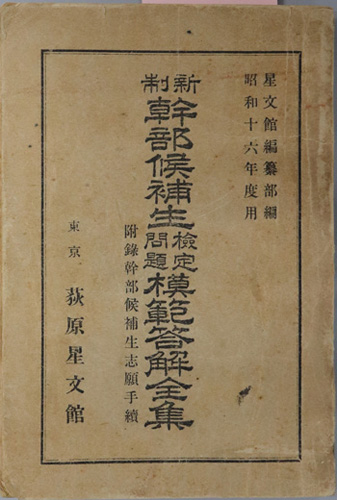 星文館編纂部編
昭和十六年度用
新制
幹部候補生檢定問題模範答解全集
附錄幹部候補生志願手續
東京 荻原星文館